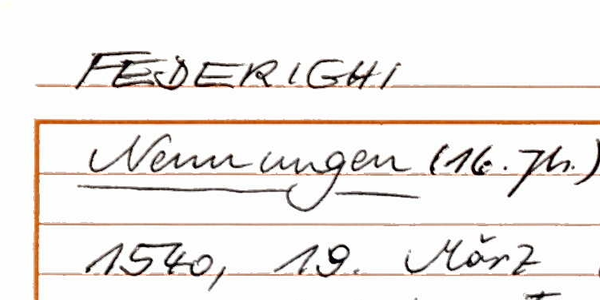 FEDERIGHI
Nennungen (16. Jh.)
1540, 19. März